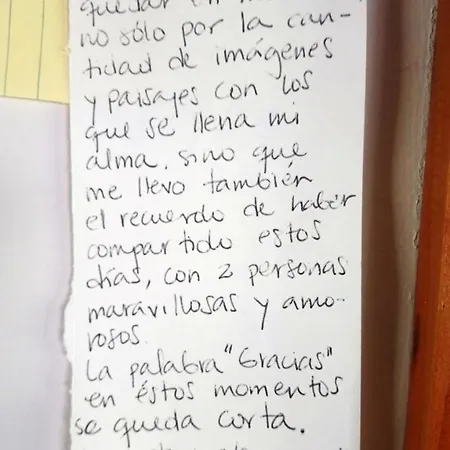 quedar en
no sólo por la can-
tidad de imágenes
y paisajes con los
que se llena mi
alma, sino que
me llevo también
el recuerdo de haber
compartido estos
días, con 2 personas
maravillosas y amo-
rosos.
La palabra "Gracias"
en éstos momentos
se queda corta.